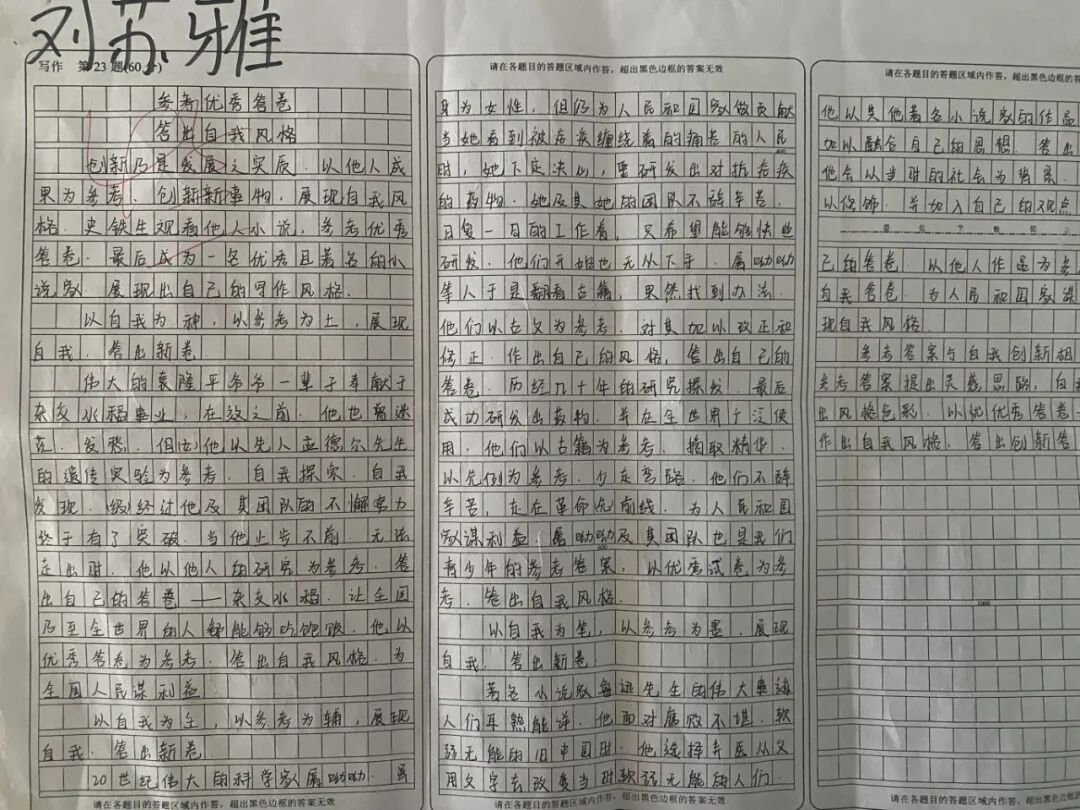 刘苏雅
写作 第23题(60分)
参考优秀答卷
答出自我风格
创新乃是发展之实质。以他人成
果为参考，创新新事物，展现自我风
格。史铁生观看他人小说，参考优秀
答卷，最后成为一名优秀且著名的小
说家，展现出自己的写作风格。
以自我为神，以参考为土，展现
自我，答出新卷。
伟大的袁隆平爷爷一辈子奉献于
杂交水稻事业，在这之前，他也曾迷
茫、发愁，但他以先人孟德尔先生
的遗传实验为参考，自我探索，自我
发现，经过他及其团队的不懈努力
终于有了突破。当他止步不前，无法
走出时，他以他人的研究为参考，答
出自己的答卷——杂交水稻，让全国
乃至全世界的人都能够吃饱饭。他以
优秀答卷为参考，答出自我风格，为
全国人民谋利益。
以自我为主，以参考为辅，展现
自我，答出新卷。
20世纪伟大的科学家屠呦呦，虽
请在各题目的答题区域内作答，超出黑色边框的答案无效
请在各题目的答题区域内作答，超出黑色边框的答案无效
身为女性，但仍为人民和国家做贡献
当她看到被疟疾缠绕着的痛苦的人民
时，她下定决心，要研发出对抗疟疾
的药物。她及其她的团队不辞辛苦，
日复一日的工作着，只希望能够快些
研发。他们开始也无从下手，屠呦呦
等人于是翻看古籍，果然找到办法。
他们以古文为参考，对其加以改正和
修正，作出自己的风格，答出自己的
答卷。历经几十年的研究探发，最后
成功研发出药物，并在全世界广泛使
用。他们以古籍为参考，摘取精华，
以先例为参考，少走弯路。他们不辞
辛苦，走在革命先前线，为人民和国
家谋利益。屠呦呦及其团队也是我们
青少年的参考答案，以优秀试卷为参
考，答出自我风格。
以自我为笔，以参考为墨，展现
自我，答出新卷。
著名小说家鲁迅先生的伟大事迹
人们耳熟能详。他面对腐败不堪，软
弱无能的旧中国时，他选择弃医从文
用文字去改变当时软弱无能的人们。
请在各题目的答题区域内作答，超出黑色边框的答案无效
请在各题目的答题区域内作答，超出黑色边框的
他以其他著名小说家的作品
加以融合自己的思想，答出
他会以当时的社会为背景，
以修饰，并加入自己的观点
己的答卷。以他人作品为参
自我答卷，为人民和国家谋
现自我风格。
参考答案与自我创新相
参考答案提出灵感思路，自我
出风格色彩。以优优秀答卷
作出自我风格，答出创新答
1000
请在各题目的答题区域内作答，超出黑色边框的答案